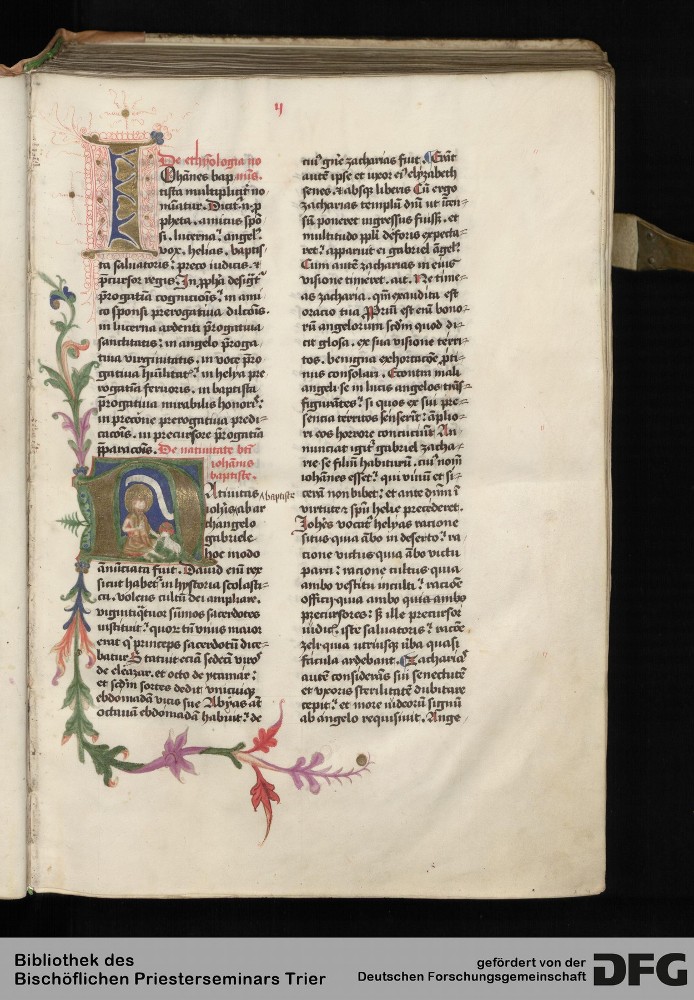 ij
De ethymologia no
minis.
Johānes bap
tista multiplicit̄ no
minatur. Dicit̄ .n. p
pheta. amicus spō
si. lucerna. angel⁹.
vox. helias. baptis-
ta saluatoris. preco iudicis. ⁊
p̄cursor regis. In pphīa designat̄
p̄rogatiua cognicionis. in ami
co sponsi prerogatiua dilcōis.
in lucerna ardenti p̄rogatiua
sanctitatis. in angelo p̄roga
tiua virginitatis. in voce p̄ro
gatiua humilitat̄. in helya pre
rogatiua feruoris. in baptista
p̄rogatiua mirabilis honoris.
in precone prerogatiua predi-
cacōis. in precursore p̄rogatiua
p̄paracōis. De natiuitate bt̄i
iohānis
baptiste.
Natiuitas
baptiste
iohīs ab ar
changelo
gabriele
hoc modo
annūciata fuit. Dauid enī rex
sicut habet̄ in hystoria scolasti-
ca. volens cultū dei ampliare.
viginti q̄tuor sūmos sacerdotes
instituit. quor̄ tn̄ vnus maior
erat q̄ princeps sacerdotū dice-
batur. Statuit eciā sedecī viros
de eleazar. et octo de ythamar.
et scdm̄ sortes dedit vnicuiq̄
ebdomadā vicis sue. Abyas aūt
octauā ebdomadā habuit. de
cui⁹ gn̄e zacharias fuit. Erāt
autē ipse et vxor ei⁹ elyzabeth
senes. ⁊ absq̄ liberis. Cū ergo
zacharias templū dn̄i ut incen-
sū poneret ingressus fuiss̄. et
multitudo ppl̄i deforis expecta-
ret. apparuit ei gabriel āgel⁹.
Cum autē zacharias in eius
visione timeret. ait. Ne time-
as zacharia. qm̄ exaudita est
oracio tua. Propriū est enī bono-
rū angelorum scdm̄ quod di-
cit glosa. ex sua visione terri-
tos. benigna exhortacōne p̄ti-
nus consolari. Econtra mali
angeli se in lucis angelos trās-
figurātes. si quos ex sui pre-
sencia territos senserint. āplio-
ri eos horrore concuciunt. An
nunciat igit̄ gabriel zacha-
rie se filiū habiturū. cui⁹ nom̄
iohānes esset. qui vinū et si-
cerā non bibet. et ante dn̄m ī
virtute ⁊ spū helie precederet.
Johēs vocat̄ helyas racione
situs quia ābo in deserto. ra
cione victus quia ābo victu
parci. racione cultus quia
ambo vestitu inculti. racōe
officij quia ambo quia ambo
precursores. sꝫ ille precursor
iudicis. iste saluatoris. racōe
zeli quia utriusq̄ v̄ba quasi
facula ardebant. Zacharias
autē considerās sui senectutē
et vxoris sterilitatē dubitare
cepit. et more iudeorū signū
ab angelo requisiuit. Ange
Bibliothek des
Bischöflichen Priesterseminars Trier
gefördert von der
Deutschen Forschungsgemeinschaft
DFG